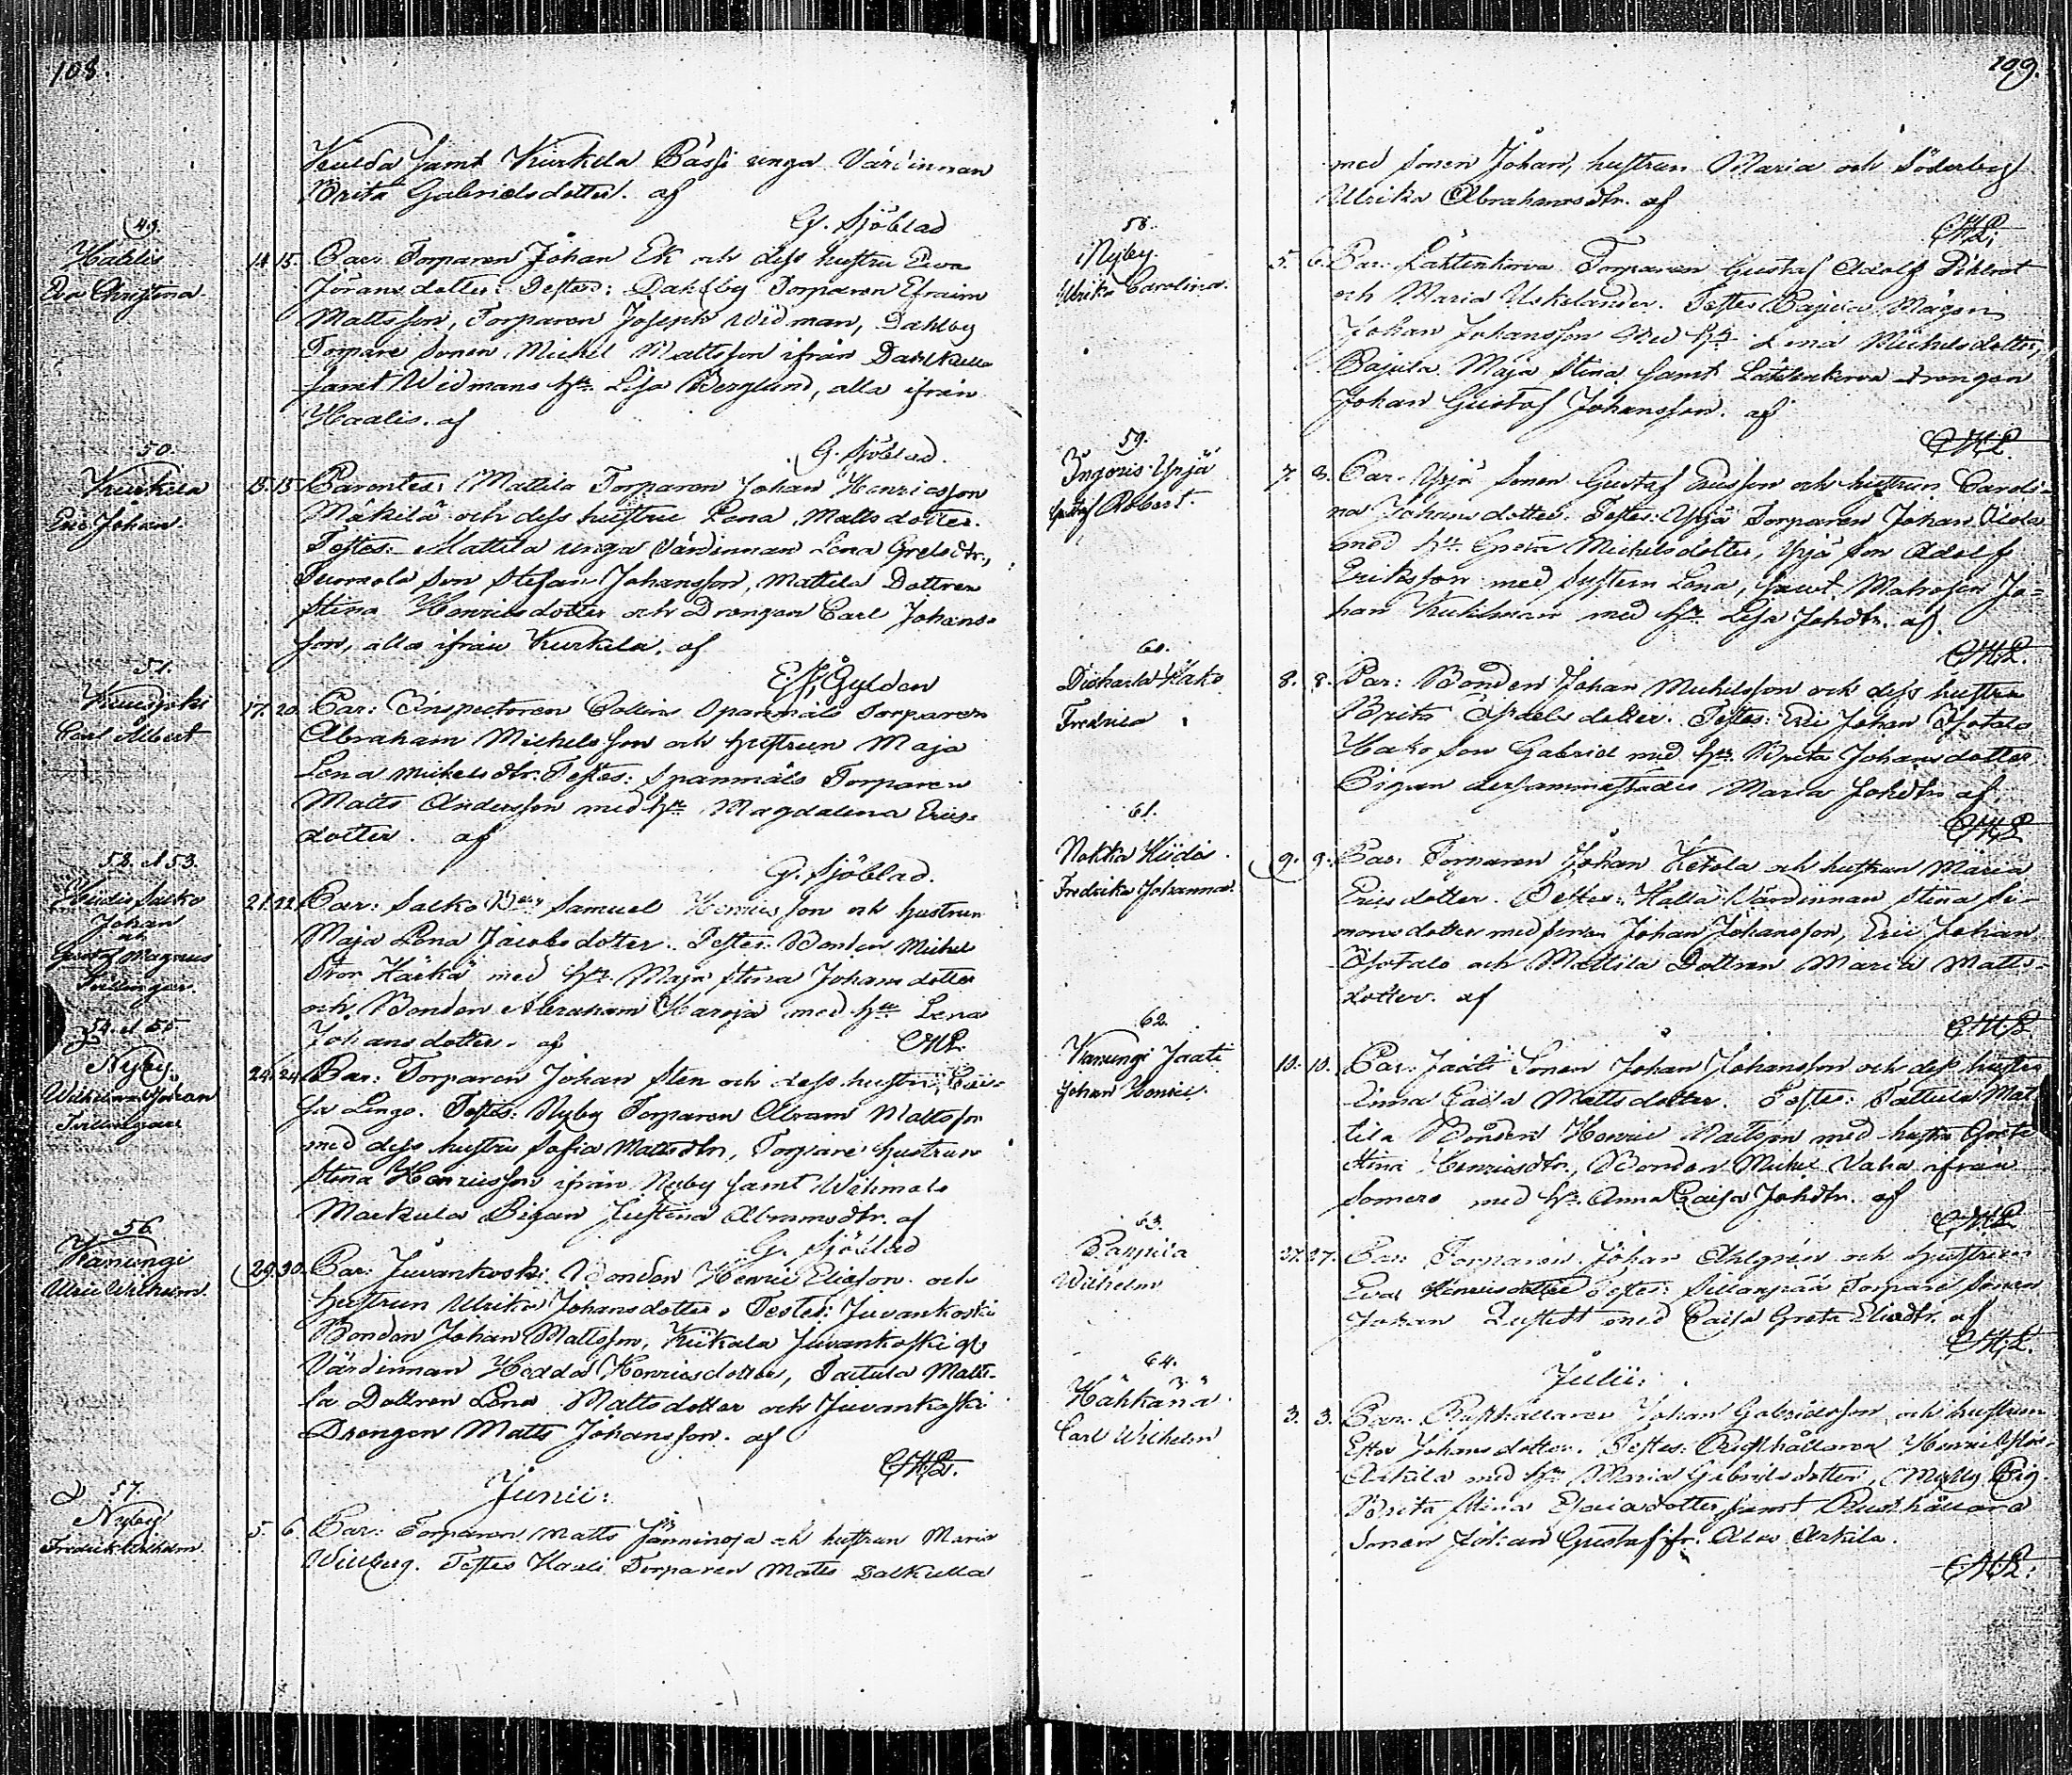 108.
Kulda samt Kurkela Bässi unga Värdinnan
Brita Gabrielsdotter. af
G. Sjöblad
49.
Haalis
Eva Christina.
14. 15. Par: Torparen Johan Ek och dess hustru Eva
Jöransdotter. Testes: Dahlby Torparen Efraim
Mattsson, Torparen Joseph Widman, Dahlby
Torpare Sonen Michel Mattsson ifrån Dahlkulla
samt Widmans hu. Lisa Berglund, alla ifrån
Haalis. af
G. Sjöblad.
50.
Kurkela
Eric Johan.
13. 15. Parentes: Mattila Torparen Johan Henricsson
Mäkilä och dess hustru Lena Mattsdotter.
Testes: Mattila unga Värdinnan Lena Gretsdtr,
Tuomola Son Stefan Johansson, Mattila Dottren
Stina Henricsdotter och Drengen Carl Johans-
son, alla ifrån Kurkela. af
E. J. Gylden
51.
Carl Albert
17. 20. Par: Inspectoren Collin Spanmåls Torparen
Abraham Michelsson och hustrun Maja
Lena Michelsdtr. Testes: Spanmåls Torparen
Matts Andersson med hu. Magdalena Erics-
dotter. af
G. Sjöblad.
52. et 53.
Hiidis Salko
Johan
et
Gustaf Magnus
Tvillingar.
21. 22. Par: Salko Samuel Henricsson och hustrun
Maja Lena Jacobsdotter. Testes: Bonden Michel
Stor Härkä med hu. Maja Stina Johansdotter
och Bonden Abraham Haroja med hu. Lena
Johansdotter. af
54. et 55
Nyby
Wilhelm Johan
Tvillingar
24. 24. Par: Torparen Johan Sten och dess hustru Cai-
sa Lingo. Testes: Nyby Torparen Abram Mattsson
med dess hustru Sofia Mattsdtr, Torpare hustrun
Stina Henricsson ifrån Nyby samt Wihmalo
Markula Pigan Justina Abramsdtr. af
G. Sjöblad
56.
Kanungi
Ulric Wilhelm.
29. 30. Par: Juvankoski Bonden Henric Eliasson och
hustrun Ulrika Johansdotter. Testes: Juvankoski
Bonden Johan Mattsson, Kiikala Juvankoski gl
Värdinnan Hedda Henricsdotter, Taitula Matti-
la Dottren Lena Mattsdotter och Juvankoski
Drengen Matts Johansson. af
Junii:
57.
Nyby
Fredrik Wilhelm.
5. 6. Par: Torparen Matts Jänninoja och hustrun Maria
Willberg. Testes Haali Torparen Matts Dalkulla
109.
med sonen Johan, hustrun Maria och Söderberg
Ulrika Abrahamsdtr. af
58.
Nyby.
Ulrika Carolina.
5. 6. Par: Lättenkorva Torparen Gustaf Adolf
och Maria Uskelander. Testes Pajula Mågen
Johan Johansson med hu. Lena Michelsdotter,
Pajula Maja Stina samt Lättenkorva drengen
Johan Gustaf Johansson. af
59.
Ingeris Ypjä
Gustaf Robert.
7. 8. Par: Ypjä Sonen Gustaf Ericsson och hustrun Caroli-
na Johansdotter. Testes: Ypjä Torparen Johan
med hu. Greta Michelsdotter, Ypjä Son Adolf
Ericsson med systern Lena, samt Matrosen Jo-
han Kuhlman med hu. Lisa Johdtr. af
60.
Kako
Fredrica
8. 8. Par: Bonden Johan Michelsson och dess hustru
Brita Axelsdotter. Testes: Eric Johan
Kako son Gabriel med hu. Brita Johansdotter
Pigan dersammastädes Maria Johdtr. af
61.
Nokka Hiidis
Fredrika Johanna.
9. 9. Par: Torparen Johan Ketola och hustrun Maria
Ericsdotter. Testes: Halla Värdinnan Stina Si-
monsdotter med sonen Johan Johansson, Eric Johan
och Mattila Dottren Maria Matts-
dotter. af
62.
Kanungi Jaati
Johan Henric.
10. 10. Par: Jaati Sonen Johan Johansson och dess hustru
Anna Caisa Mattsdotter. Testes: Taitula Mat
tila Bonden Henric Mattsson med hustru Greta
Stina Henricsdtr, Bonden Michel Valia ifrån
Somero med hu. Anna Caisa Johdtr. af
63.
Pappila
Wilhelm
27. 27. Par: Torparen Johan Ahlgrén och hustrun
Eva Henricsdotter Testes: Sillanpää Torpare Sonen
Johan med Caisa Greta Eliedtr. af
Julii:
64.
Hähkänä.
Carl Wilhelm
3. 3. Par: Rusthållaren Johan Gabrielsson och hustrun
Ester Johansdotter. Testes: Rusthållaren Henric
Arkila med hu. Maria Gabrielsdotter, Pig.
Brita Stina Esaiadotter samt Rusthållare
Sonen Johan Gustaf ifr. Arkila.